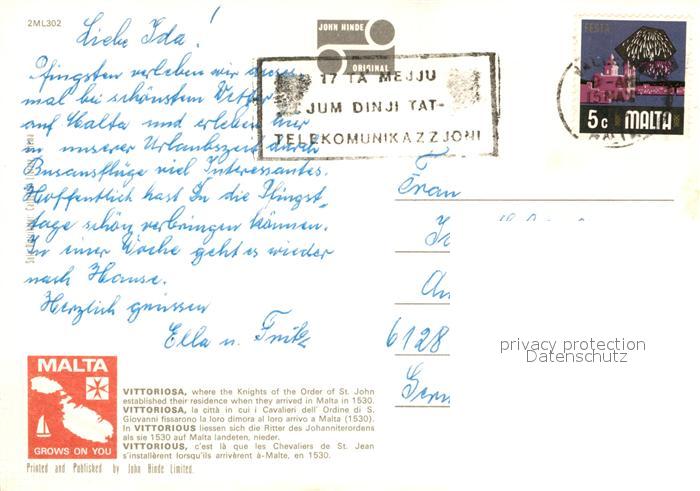 2ML302
JOHN HINDE
ORIGINAL
17 TA MEJJU
JUM DINJI TAT-
TELEKOMUNIKAZZJONI
FESTA
5c MALTA
Liebe Ida!
Pfingsten verleben wir dieses
mal bei schönstem Wetter
auf Malta und erleben hier
in unserer Urlaubszeit durch
Busausflüge viel Interessantes.
Hoffentlich hast Du die Pfingst-
tage schön verbringen können.
In einer Woche geht es wieder
nach Hause.
Herzlich grüssen
Ella u. Fritz
Frau
6128
privacy protection
Datenschutz
MALTA
GROWS ON YOU
VITTORIOSA, where the Knights of the Order of St. John
established their residence when they arrived in Malta in 1530.
VITTORIOSA, la città in cui i Cavalieri dell' Ordine di S.
Giovanni fissarono la loro dimora al loro arrivo a Malta (1530).
In VITTORIOUS liessen sich die Ritter des Johanniterordens
als sie 1530 auf Malta landeten, nieder.
VITTORIOUS, c'est là que les Chevaliers de St. Jean
s'installèrent lorsqu'ils arrivèrent à-Malte, en 1530.
Printed and Published by John Hinde Limited.